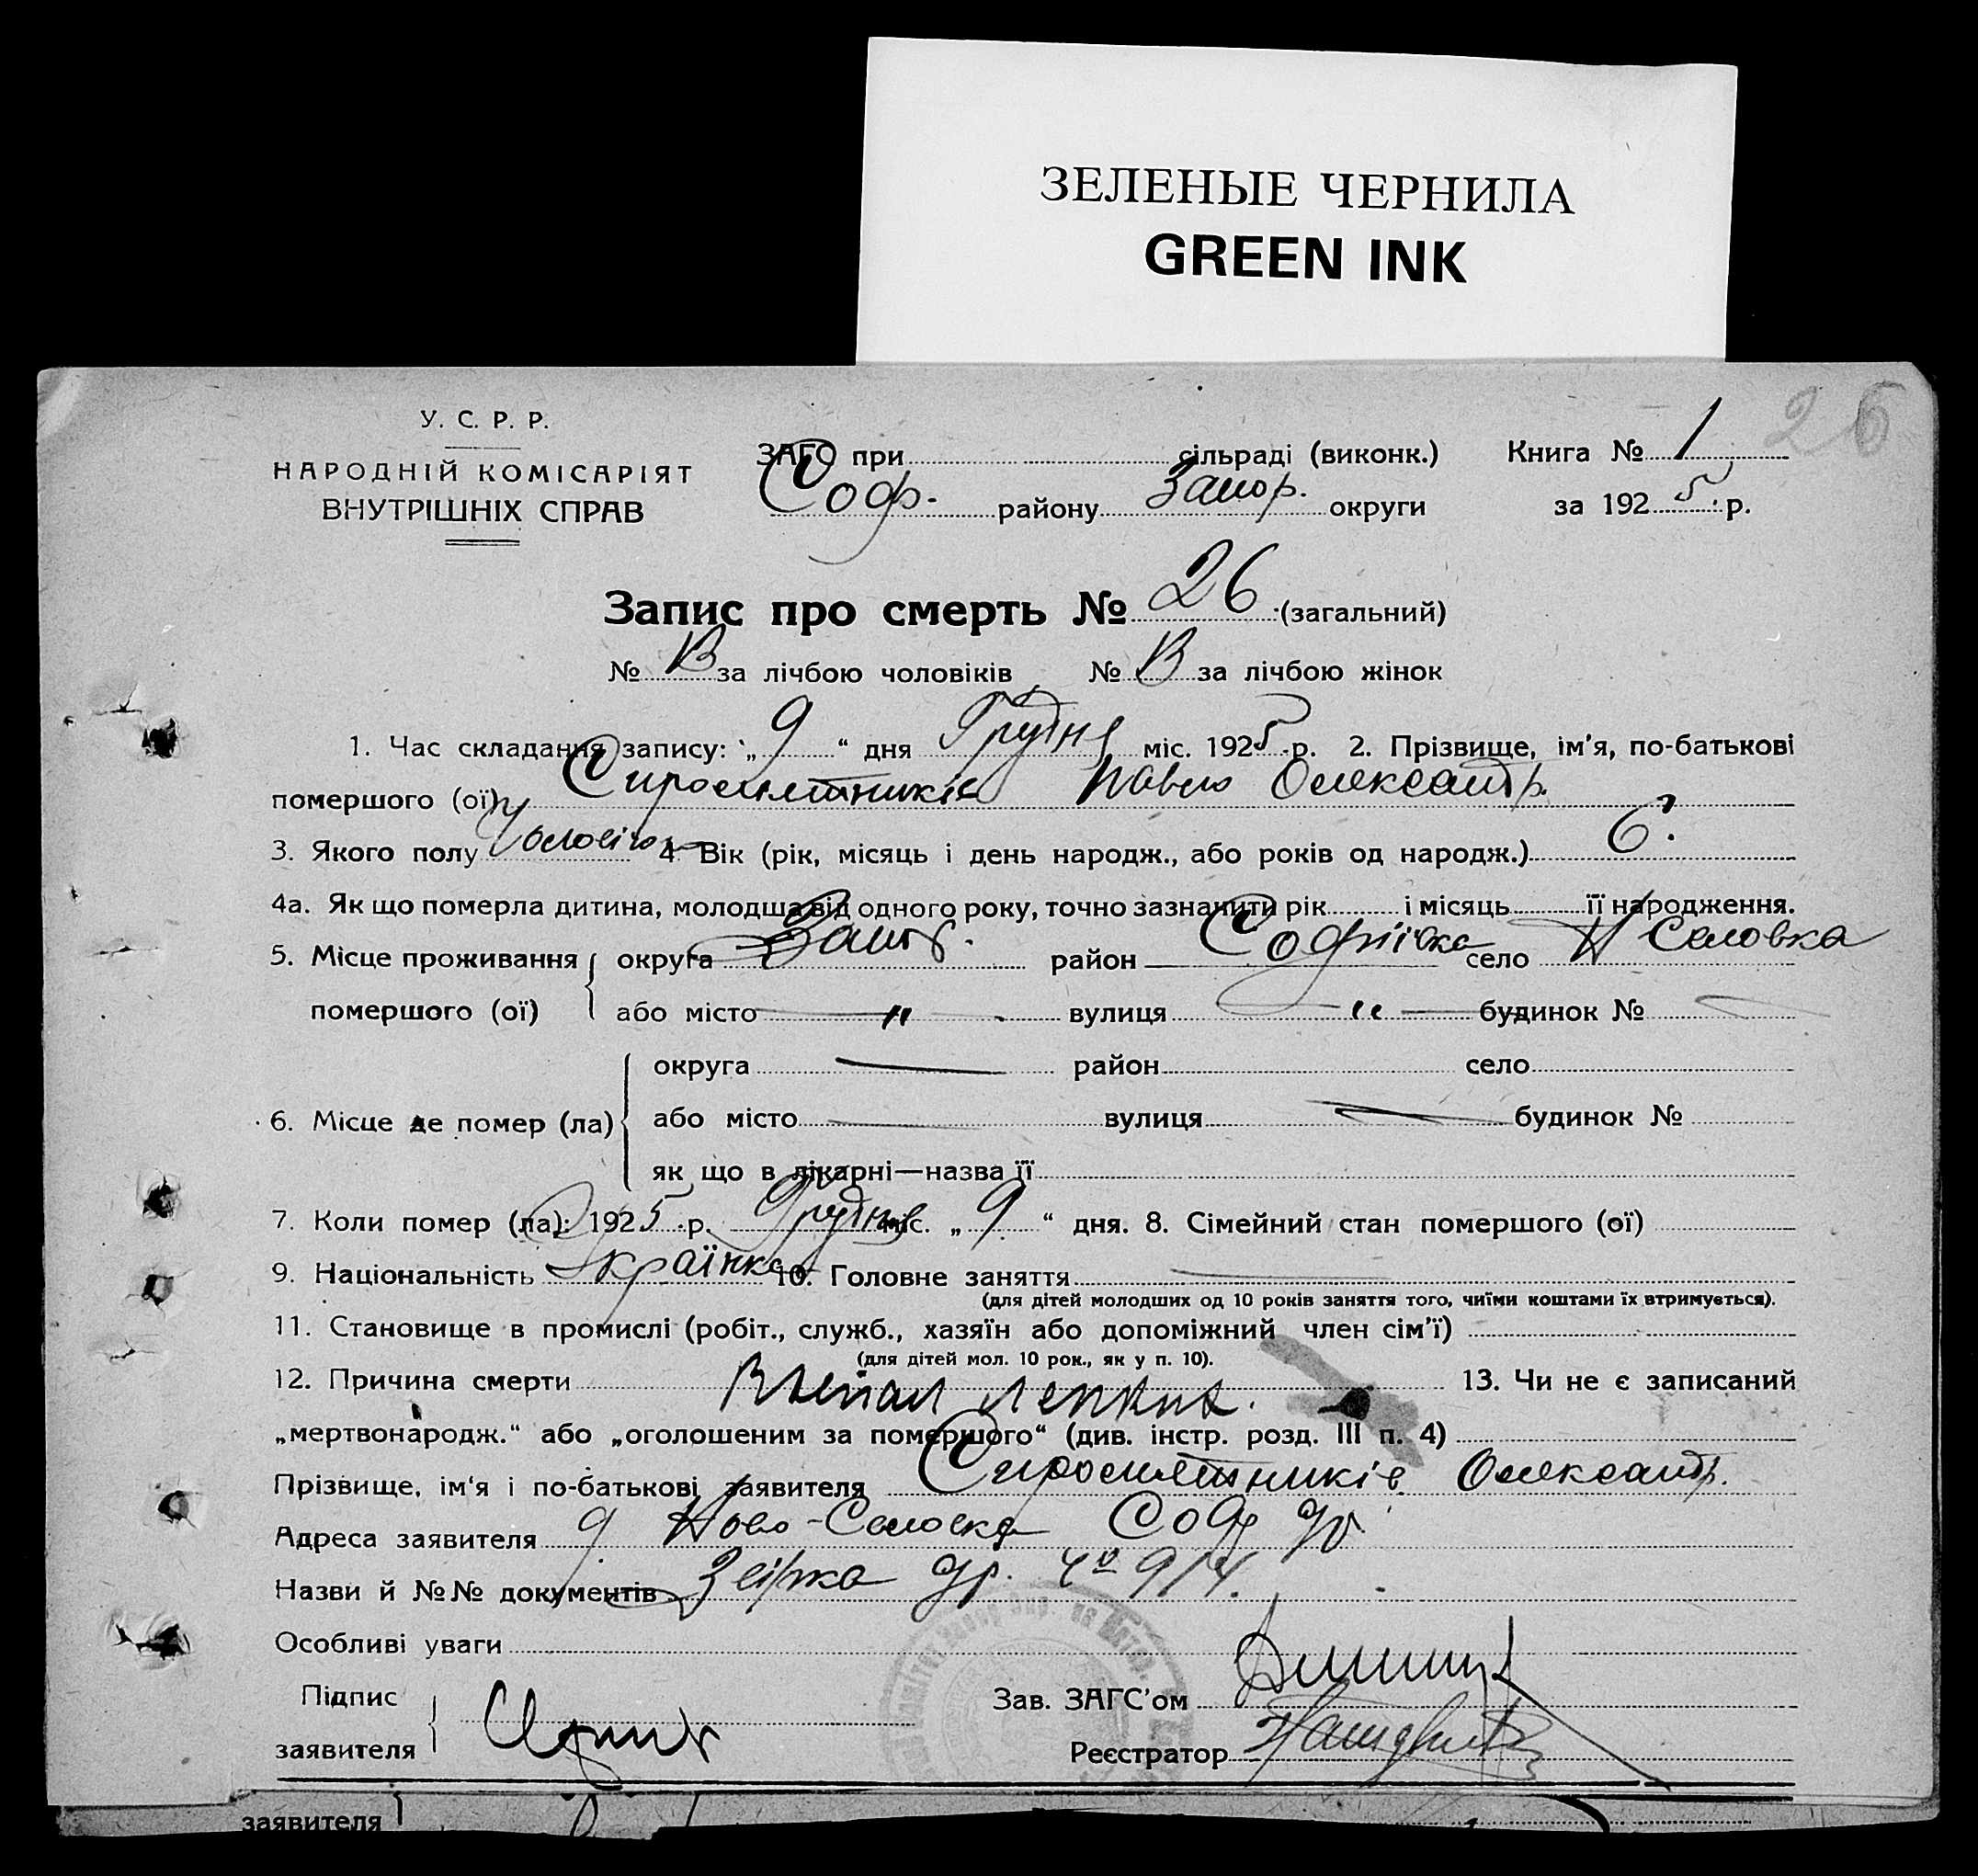 ЗЕЛЕНЫЕ ЧЕРНИЛА
GREEN INK
26
У. С. Р. Р.
НАРОДНІЙ КОМІСАРІЯТ
ВНУТРІШНІХ СПРАВ
ЗАГС при сільраді (виконк.) Книга № 1
Соф. району Запор. округи за 1925 р.
Запис про смерть № 26 (загальний)
№ В за лічбою чоловіків № В за лічбою жінок
1. Час складання запису: „9“ дня Грудня міс. 1925 р. 2. Прізвище, ім'я, по-батькові
помершого (ої) Сиромятників Павло Олександр.
3. Якого полу Чоловіч 4. Вік (рік, місяць і день народж., або років од народж.) 6
4а. Як що померла дитина, молодша від одного року, точно зазначити рік і місяць її народження.
5. Місце проживання помершого (ої) округа Запор. район Софіївка село НСеловка
або місто " вулиця " будинок №
6. Місце де помер (ла) округа район село
або місто вулиця будинок №
як що в лікарні—назва її
7. Коли помер (ла): 1925 р. Грудня міс. „9“ дня. 8. Сімейний стан помершого (ої)
9. Національність Українка 10. Головне заняття
(для дітей молодших од 10 років заняття того, чиїми коштами їх втримується).
11. Становище в промислі (робіт., служб., хазяїн або допоміжний член сім'ї)
(для дітей мол. 10 рок., як у п. 10).
12. Причина смерти 13. Чи не є записаний
„мертвонародж.“ або „оголошеним за помершого“ (див. інстр. розд. III п. 4)
Прізвище, ім'я і по-батькові заявителя Сиромятників Олександр.
Адреса заявителя Ново-Селовка Соф
Назви й №№ документів 914.
Особливі уваги
Підпис
заявителя
Зав. ЗАГС'ом
Реєстратор
заявителя